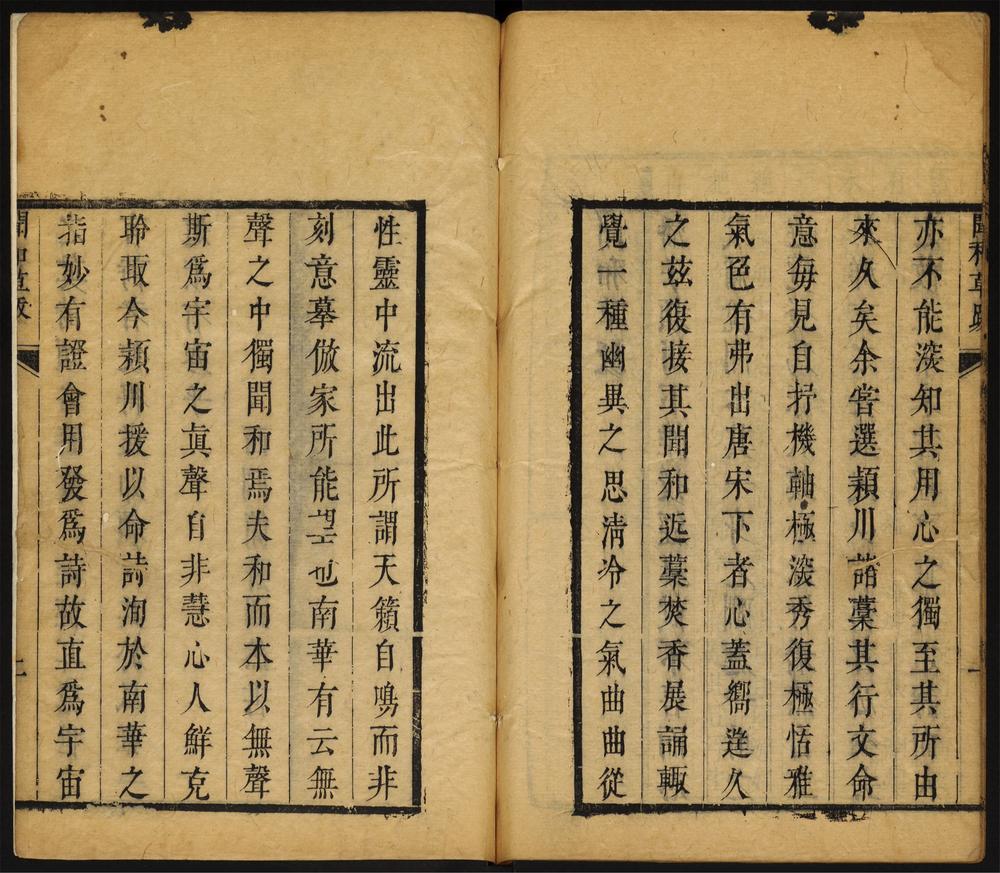 聞和草敘
一
亦不能淡知其用心之獨至其所由
來久矣余嘗選頴川諸藁其行文命
意每見自抒機軸極淡秀復極恬雅
氣色有弗出唐宋下者心蓋嚮逹久
之玆復接其聞和近藁焚香展誦輙
覺一種幽異之思清冷之氣曲曲從
性靈中流出此所謂天籟自鳴而非
刻意摹倣家所能也南華有云無
聲之中獨聞和焉夫和而本以無聲
斯爲宇宙之眞聲自非慧心人鮮克
聆取今頴川援以命詩洵於南華之
指妙有證會用發爲詩故直爲宇宙
聞和草敘
二